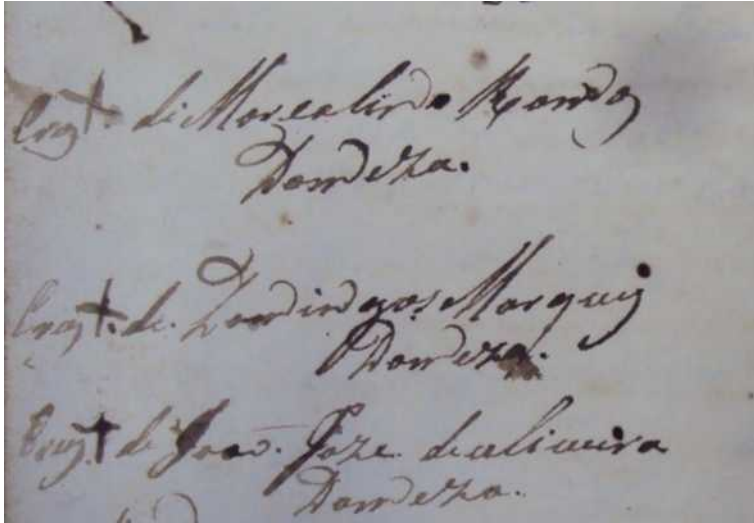 Cruz † de Marcalindo Ramos
Dom Deza.
Cruz †. de. Domingos Marques
Dom Deza.
Cruz. † de Joao. Joze. deoliveira
Dom Deza.